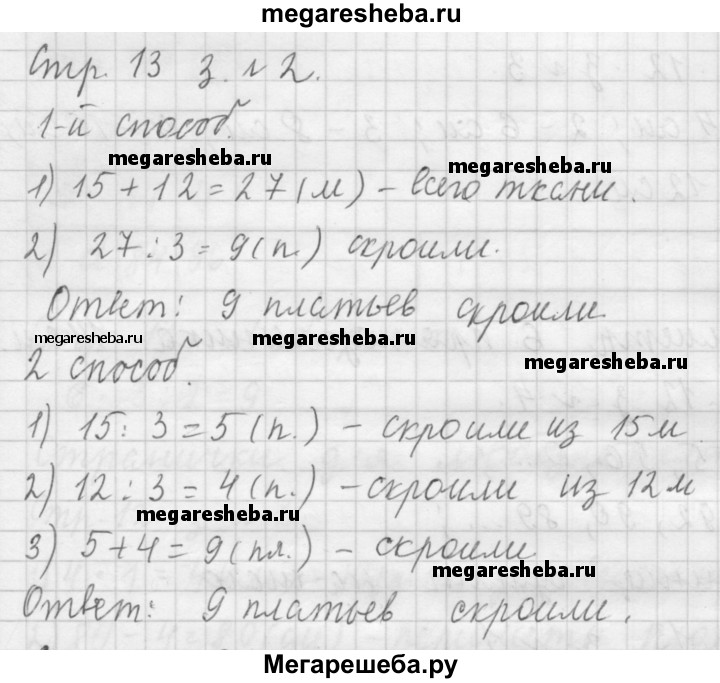 megaresheba.ru
Стр. 13 з. № 2.
1-й способ.
megaresheba.ru
megaresheba.ru
1) 15 + 12 = 27 (м) - всего ткани.
2) 27 : 3 = 9 (п.) скроили.
Ответ: 9 платьев скроили
megaresheba.ru
megaresheba.ru
megaresheba.ru
2 способ.
1) 15 : 3 = 5 (п.) - скроили из 15 м
2) 12 : 3 = 4 (п.) - скроили из 12 м
megaresheba.ru
3) 5 + 4 = 9 (пл.) - скроили
megaresheba.ru
Ответ: 9 платьев скроили.
Мегарешеба.ру